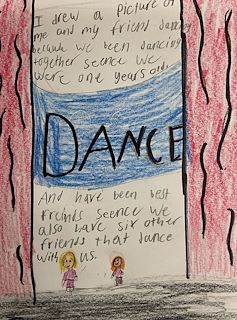 I drew a picture of
me and my friend dancing
because we been dancing
together seence we
were one years old.
DANCE
And have been best
Freinds seence we
also have six other
friends that dance
with us.